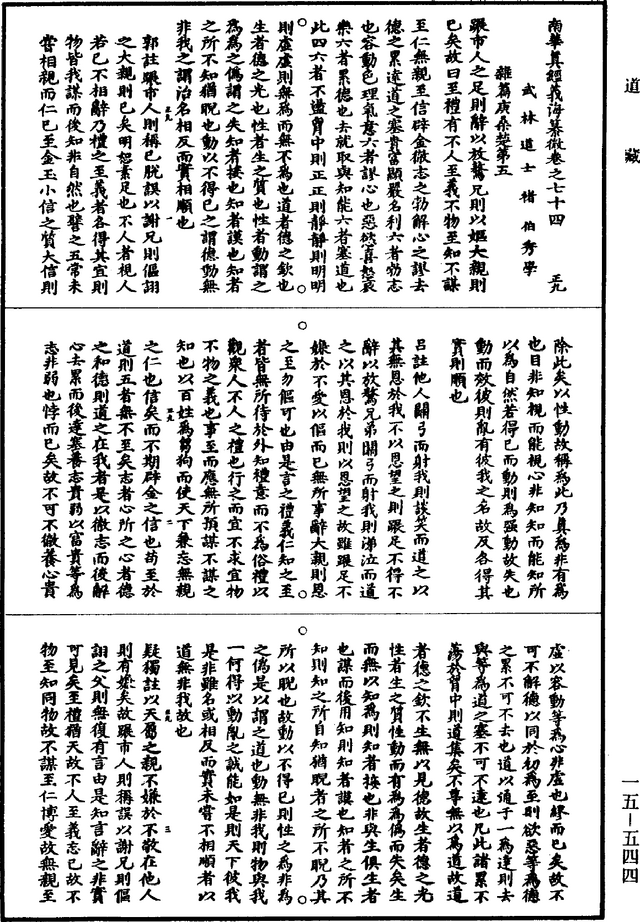 道藏
南華真經義海纂微卷之七十四 正九
武林道士褚伯秀學
雜篇庚桑楚第五
蹍市人之足則辭以放驁兄則以嫗大親則
已矣故曰至禮有不人至義不物至知不謀
至仁無親至信辟金徹志之勃解心之謬去
德之累達道之塞貴富顯嚴名利六者勃志
也容動色理氣意六者謬心也惡欲喜怒哀
樂六者累德也去就取與知能六者塞道也
此四六者不盪胷中則正正則靜靜則明明
則虛虛則無為而無不為也道者德之欽也
生者德之光也性者生之質也性者動謂之
為為之偽謂之失知者接也知者謨也知者
之所不知猶睨也動以不得已之謂德動無
非我之謂治名相反而實相順也
郭註蹍市人則稱已脫誤以謝兄則傴詡
之大親則已矣明恕素足也不人者視人
若已不相辭乃禮之至義者各得其宜則
物皆我謀而後知非自然也譬之五常未
嘗相親而仁已至金玉小信之質大信則
除此矣以性動故稱為此乃真為非有為
也目非知視而能視心非知知而能知所
以為自然若得已而動則為強動故失也
動而效彼則亂有彼我之名故反各得其
實則順也
呂註他人關弓而射我則談笑而道之以
其無恩於我不以恩望之則蹍足不得不
辭以放驁兄弟關弓而射我則涕泣而道
之以其恩於我則以恩望之故雖蹍足不
嫌於不愛以傴而已無所事辭大親則恩
之至勿傴可也由是言之禮義仁知之至
者皆無所待於外知禮意而不為俗禮以
觀衆人不人之禮也行之而宜不求宜物
不物之義也事至而應無所預謀不謀之
知也以百姓為芻狗而使天下兼忘無親
之仁也信矣而不期辟金之信也苟至於
道則五者無不至矣志者心所之心者德
之和德則道之在我者是以徹志而後解
心去累而後達塞養志貴弱以富貴等為
志非弱也悖而已矣故不可不徹養心貴
虛以容動等為心非虛也繆而已矣故不
可不解德以同於初為至則欲惡等為德
之累不可不去也道以通于一為達則去
與等為道之塞不可不達也凡此諸累不
蕩於胷中則道集矣不尊無以為道故道
者德之欽不生無以見德故生者德之光
性者生之質性動而有為為偽而失矣生
而無以知為則知者接也非與生俱生者
也謀而後用知則知者謨也知者之所不
知則知之所自知猶睨者之所不睨乃其
所以睨也故動以不得已則性之為非為
之偽是以謂之道也動無非我則物與我
一何得以動亂之誠能如是則天下彼我
是非雖名或相反而實未嘗不相順者以
道無非我故也
疑獨註以天屬之親不嫌於不敬在他人
則有嫌矣故蹍市人則稱誤以謝兄則傴
詡之父則無復有言由是知言辭之非實
可見矣至禮猶天故不人至義志已故不
物至知同物故不謀至仁博愛故無親至
一五—五四四